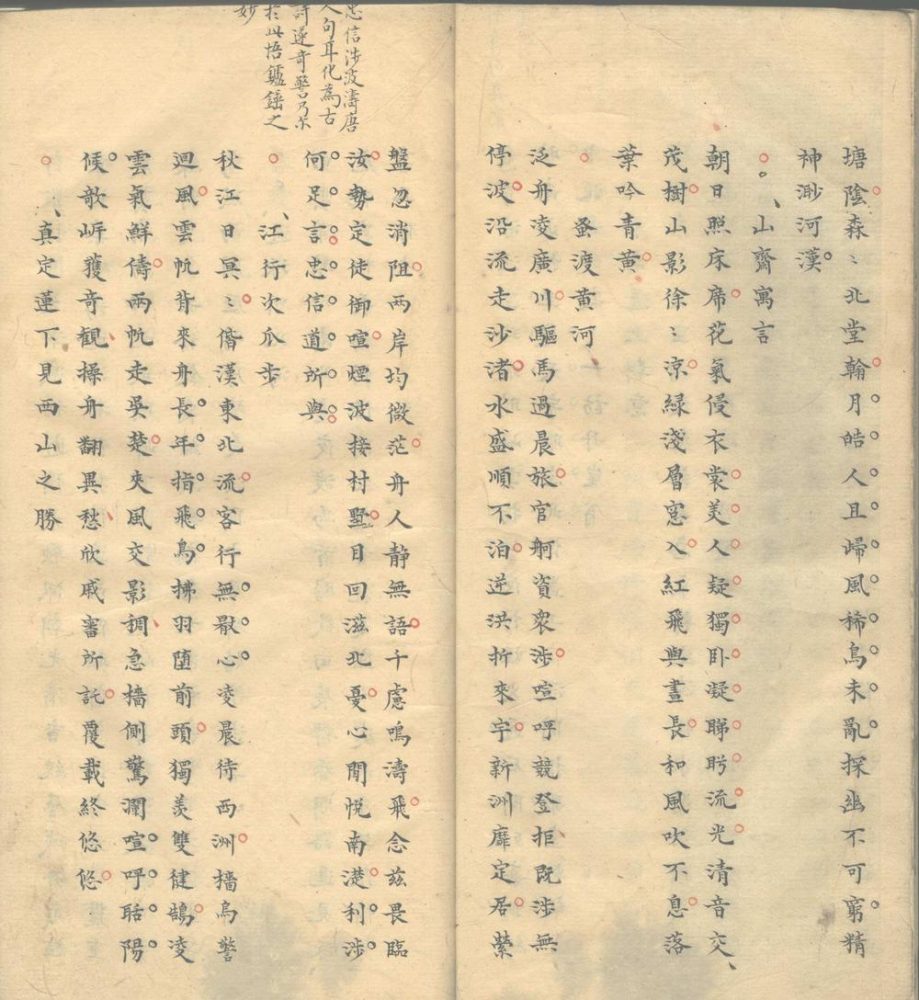 塘陰森〻北堂翰月皓人且歸風稀烏未亂探幽不可窮精
神渺河漢
山齋寓言
朝日照床席花氣侵衣裳美人疑獨卧凝睇眄流光清音交
茂樹山影徐〻涼綠淺層窓入紅飛與晝長和風吹不息落
葉吟青黄
蚤渡黄河
泛舟凌廣川驅馬過晨旅官舸資衆涉喧呼競登拒既涉無
停波沿流走沙渚水盛順不泊逆洪折來宇新洲靡定居縈
忠信涉波濤唐
人句耳化為古
詩遂奇警乃尔
於此悟鑪錘之
妙
盤忽消阻兩岸均微茫舟人静無語千慮鳴濤飛念兹畏臨
汝勢定徒御喧煙波接村墅日回滋北憂心閒悅南濋利涉
何足言忠信道所與
江行次爪步
秋江日冥〻偕漢東北流客行無斁心凌晨待西洲檣烏警
迴風雲帆背來舟長年指飛鳥拂羽墮前頭獨羡雙健鶻凌
雲氣鮮儔兩帆走吳楚夾風交影調急檣側驚瀾喧呼聒陽
候歌岸獲奇観操舟翻異愁欣戚審所託覆載終悠悠
真定蓮下見西山之勝